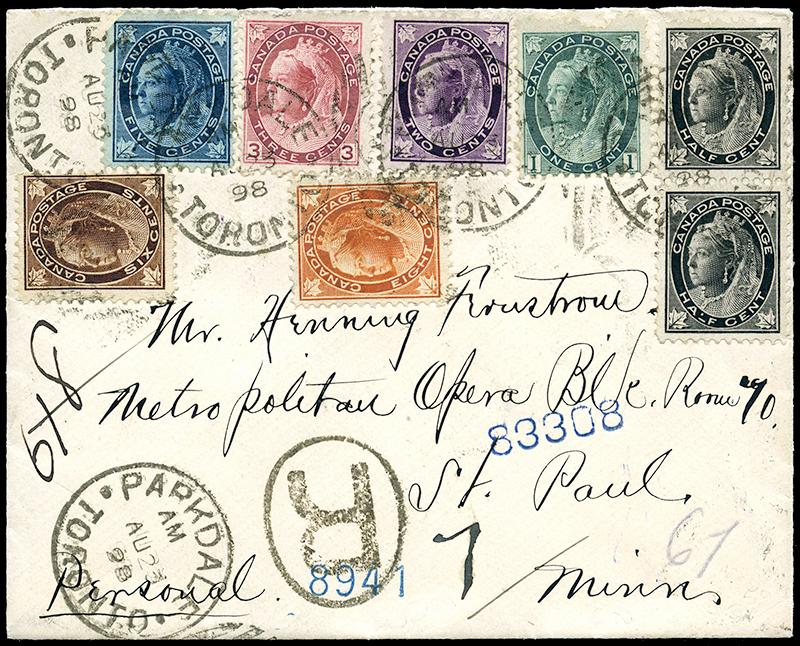 CANADA POSTAGE
FIVE CENTS
CANADA POSTAGE
3 THREE CENTS 3
CANADA POSTAGE
TWO CENTS
CANADA POSTAGE
1 ONE CENT 1
CANADA POSTAGE
HALF CENT
CANADA POSTAGE
HALF CENT
CANADA POSTAGE
SIX CENTS
CANADA POSTAGE
EIGHT CENTS
TORONTO
AU 23
98
98
TORONTO
98
Mr. Henning
Metropolitan Opera Blk. Room 70.
83308
St. Paul.
Minn
67
7
R
8941
Personal.
PARKDALE
AM
AU 23
98
TORONTO